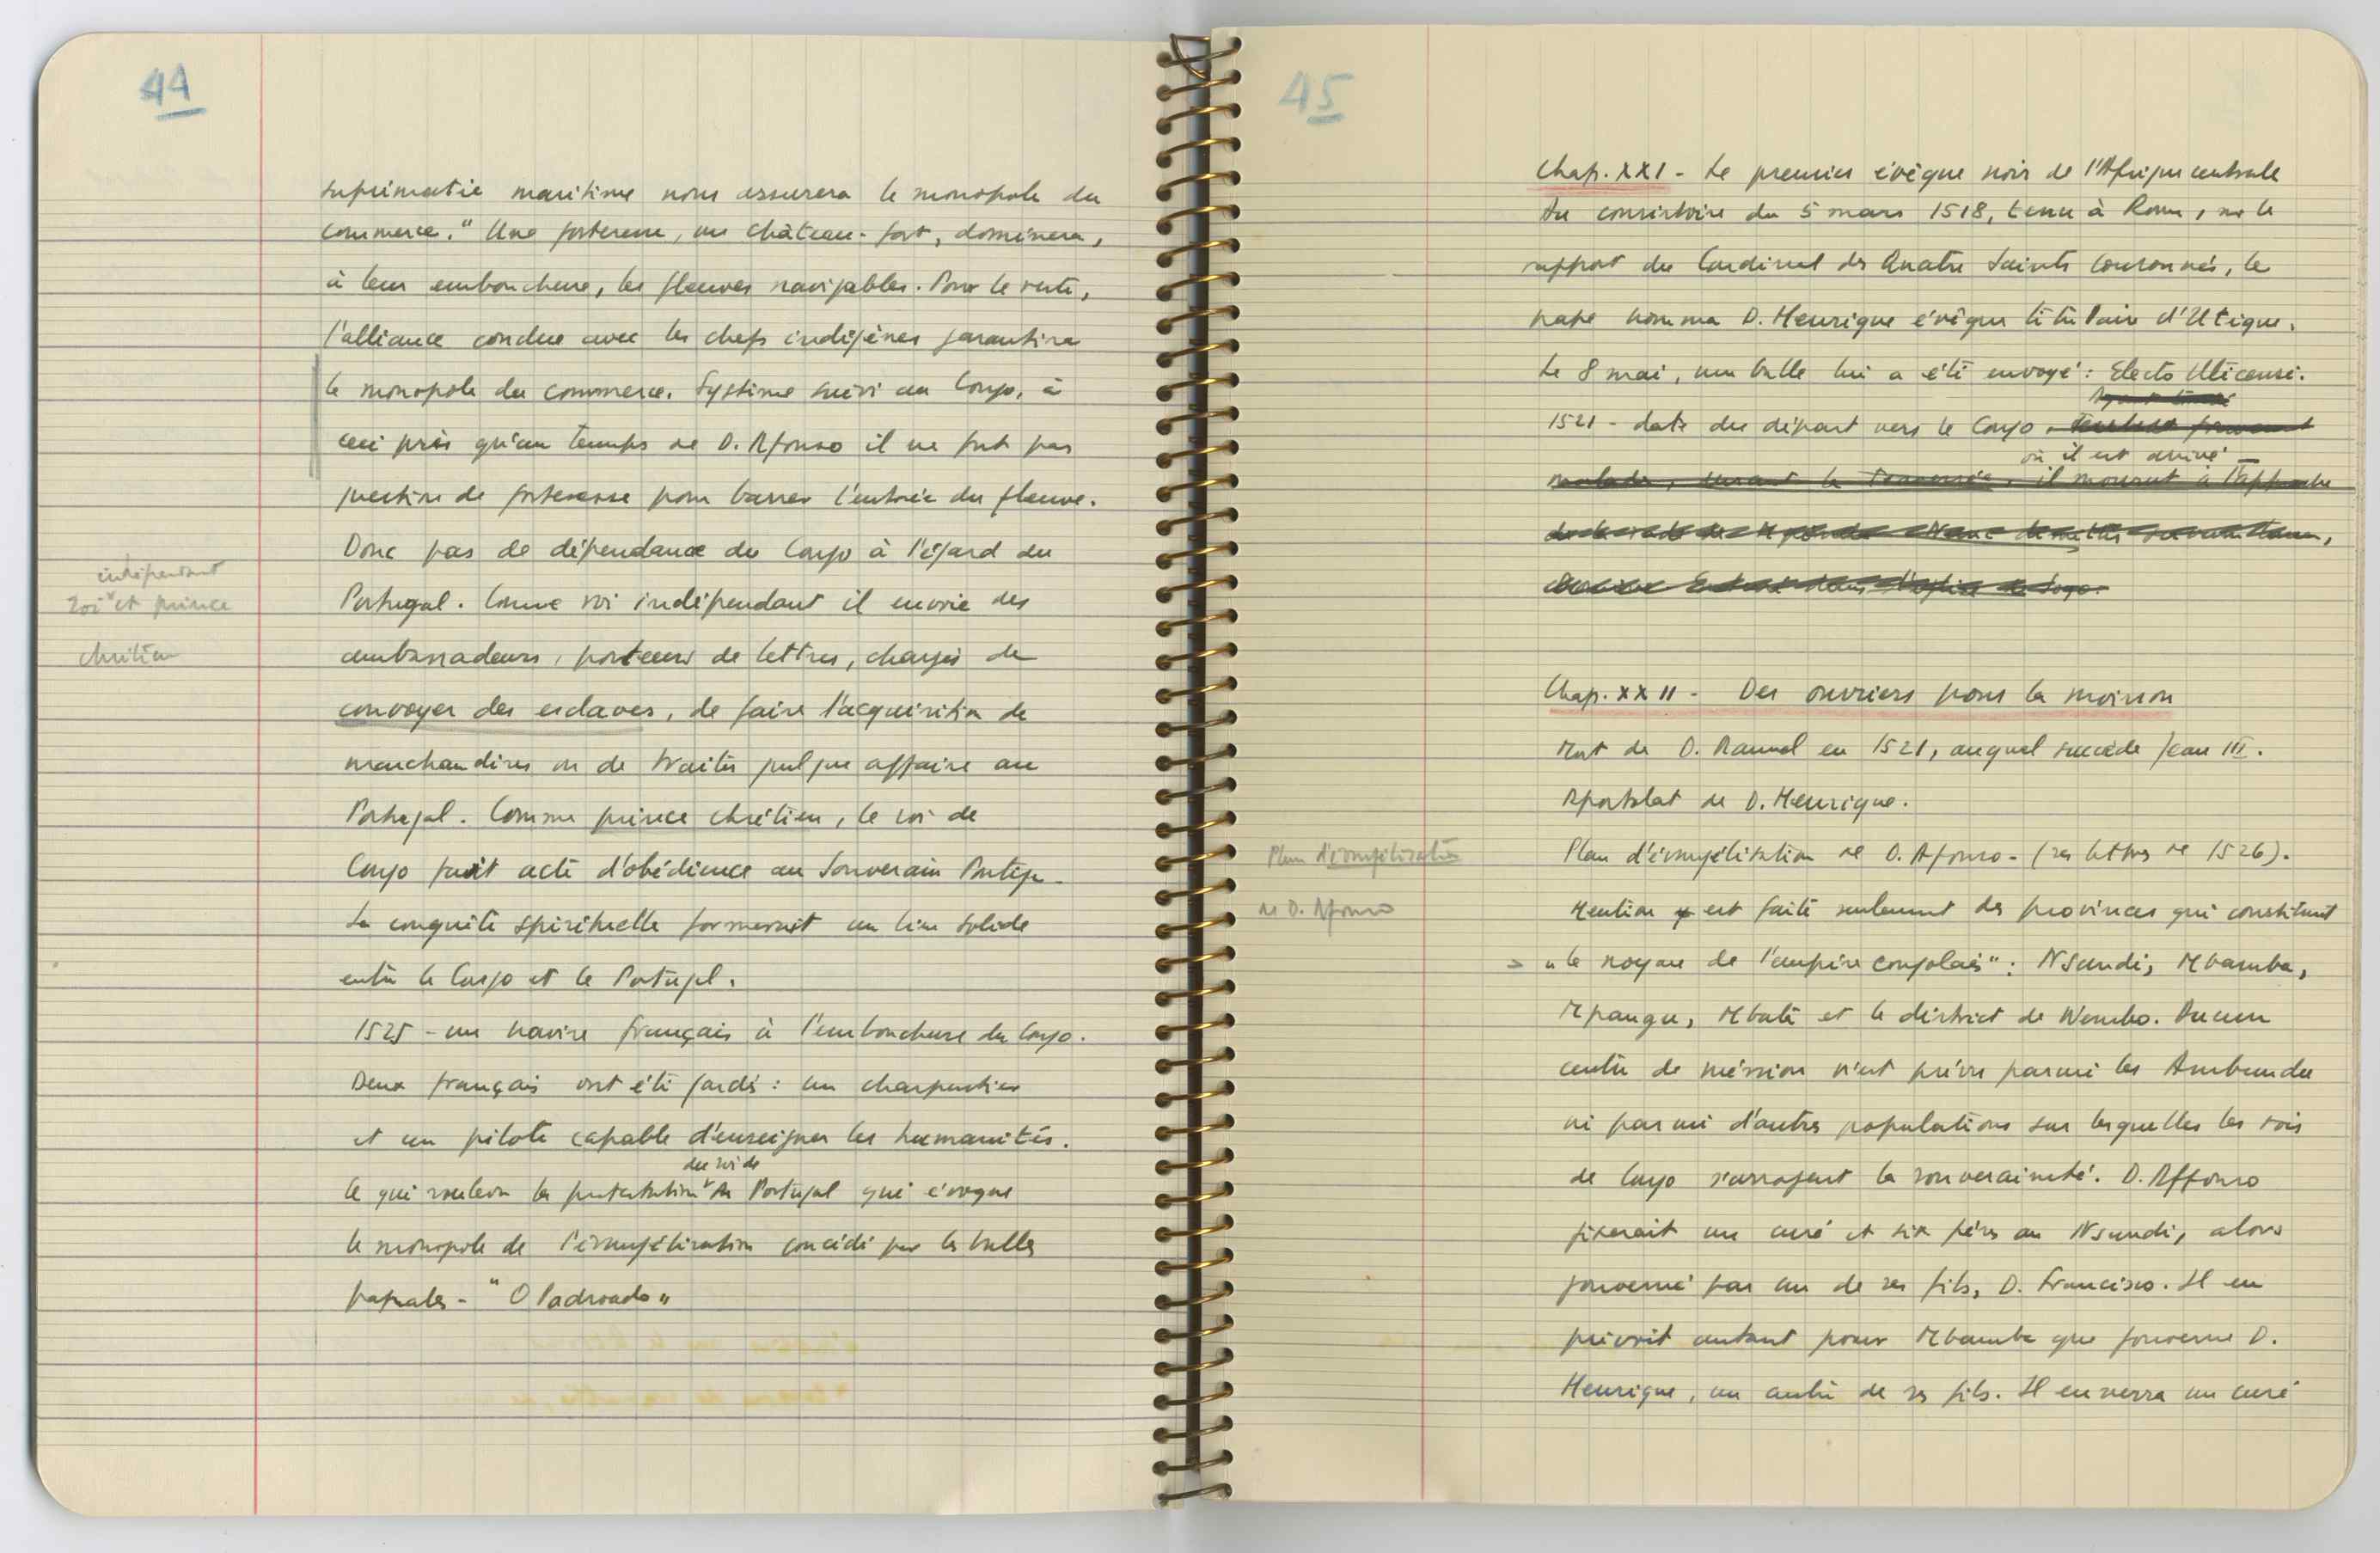 44
suprématie maritime nous assurera le monopole du
commerce." Une forteresse, un château-fort, dominera,
à leur embouchure, les fleuves navigables. Pour le reste,
l'alliance conclue avec les chefs indigènes garantira
le monopole du commerce. Système suivi au Congo, à
ceci près qu'au temps de D. Afonso il ne fut pas
question de forteresse pour barrer l'entrée du fleuve.
Donc pas de dépendance du Congo à l'égard du
indépendant
roi et prince
chrétien
Portugal. Comme roi indépendant il envoie des
ambassadeurs, porteurs de lettres, chargés de
convoyer des esclaves, de faire l'acquisition de
marchandises ou de traiter quelque affaire au
Portugal. Comme prince chrétien, le roi de
Congo fait acte d'obédience au Souverain Pontife.
La conquête spirituelle formerait un lien solide
entre le Congo et le Portugal.
1525 - un navire français à l'embouchure du Congo.
Deux français ont été gardés : un charpentier
et un pilote capable d'enseigner les humanités.
du roi de
Ce qui souleva la protestation de Portugal qui évoque
le monopole de l'évangélisation concédé par les bulles
papales - "O Padroado"
45
Chap. XXI - Le premier évêque noir de l'Afrique centrale
Au consistoire du 5 mars 1518, tenu à Rome, sur le
rapport du Cardinal des Quatre Saints Couronnés, le
pape nomma D. Henrique évêque titulaire d'Utique.
Le 8 mai, une bulle lui a été envoyé : Electo Uticensi.
1521 - date du départ vers le Congo
où il est arrivé
malade, durant la traversée, il mourut à l'approche
Chap. XXII - Des ouvriers pour la moisson
Mort de D. Manuel en 1521, auquel succède Jean III.
Apostolat de D. Henrique.
Plan d'évangélisation
de D. Afonso
Plan d'évangélisation de D. Afonso - (ses lettres de 1526).
Mention est faite seulement des provinces qui constituent
"le noyau de l'empire congolais" : Nsundi, Mbamba,
Mpangu, Mbata et le district de Wembo. Aucun
centre de mission n'est prévu parmi les Ambundu
ni parmi d'autres populations sur lesquelles les rois
de Congo s'arrogent la souveraineté. D. Affonso
fixerait un curé et six pères au Nsundi, alors
gouverné par un de ses fils, D. Francisco. Il en
prévoit autant pour Mbamba que gouverne D.
Henrique, un autre de ses fils. Il enverra un curé